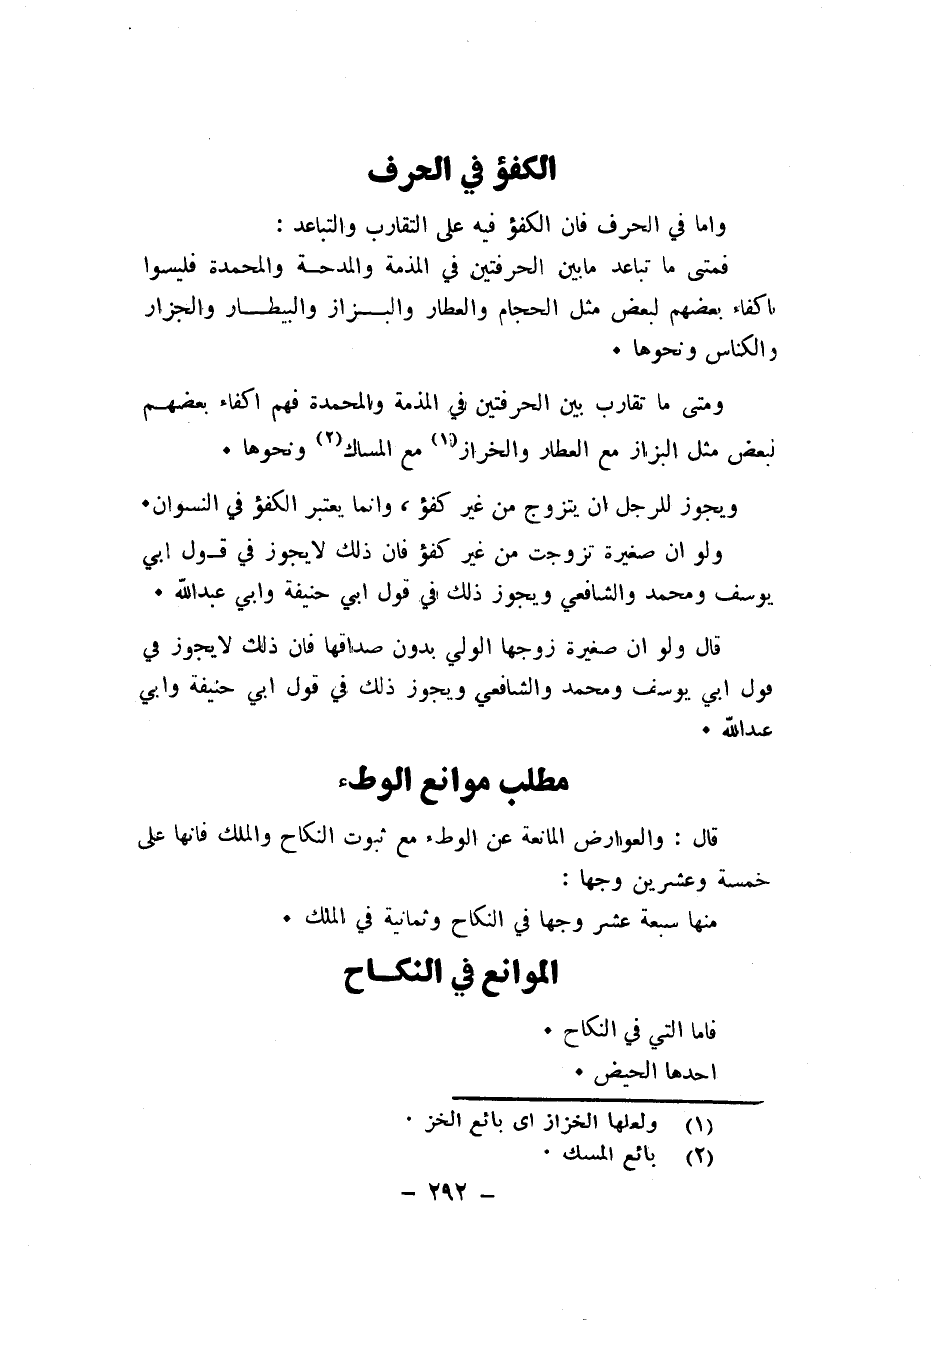 الكفؤ في الحرف
واما في الحرف فان الكفؤ فيه على التقارب والتباعد :
فمتى ما تباعد مابين الحرفتين في المذمة والمدحة والمحمدة فليسوا
باكفاء بعضهم لبعض مثل الحجام والعطار والبزاز والبيطار والجزار
والكناس ونحوها •
ومتى ما تقارب بين الحرفتين في المذمة والمحمدة فهم اكفاء بعضهم
لبعض مثل البزاز مع العطار والخراز(١) مع المساك(٢) ونحوها •
ويجوز للرجل ان يتزوج من غير كفؤ ، وانما يعتبر الكفؤ في النسوان•
ولو ان صغيرة تزوجت من غير كفؤ فان ذلك لايجوز في قول ابي
يوسف ومحمد والشافعي ويجوز ذلك في قول ابي حنيفة وابي عبدالله •
قال ولو ان صغيرة زوجها الولي بدون صداقها فان ذلك لايجوز في
قول ابي يوسف ومحمد والشافعي ويجوز ذلك في قول ابي حنيفة وابي
عبدالله •
مطلب موانع الوطء
قال : والعوارض المانعة عن الوطء مع ثبوت النكاح والملك فانها على
خمسة وعشرين وجها :
منها سبعة عشر وجها في النكاح وثمانية في الملك •
الموانع في النكاح
فاما التي في النكاح •
احدها الحيض •
(١) ولعلها الخزاز اى بائع الخز •
(٢) بائع المسك •
– ٢٩٢ –